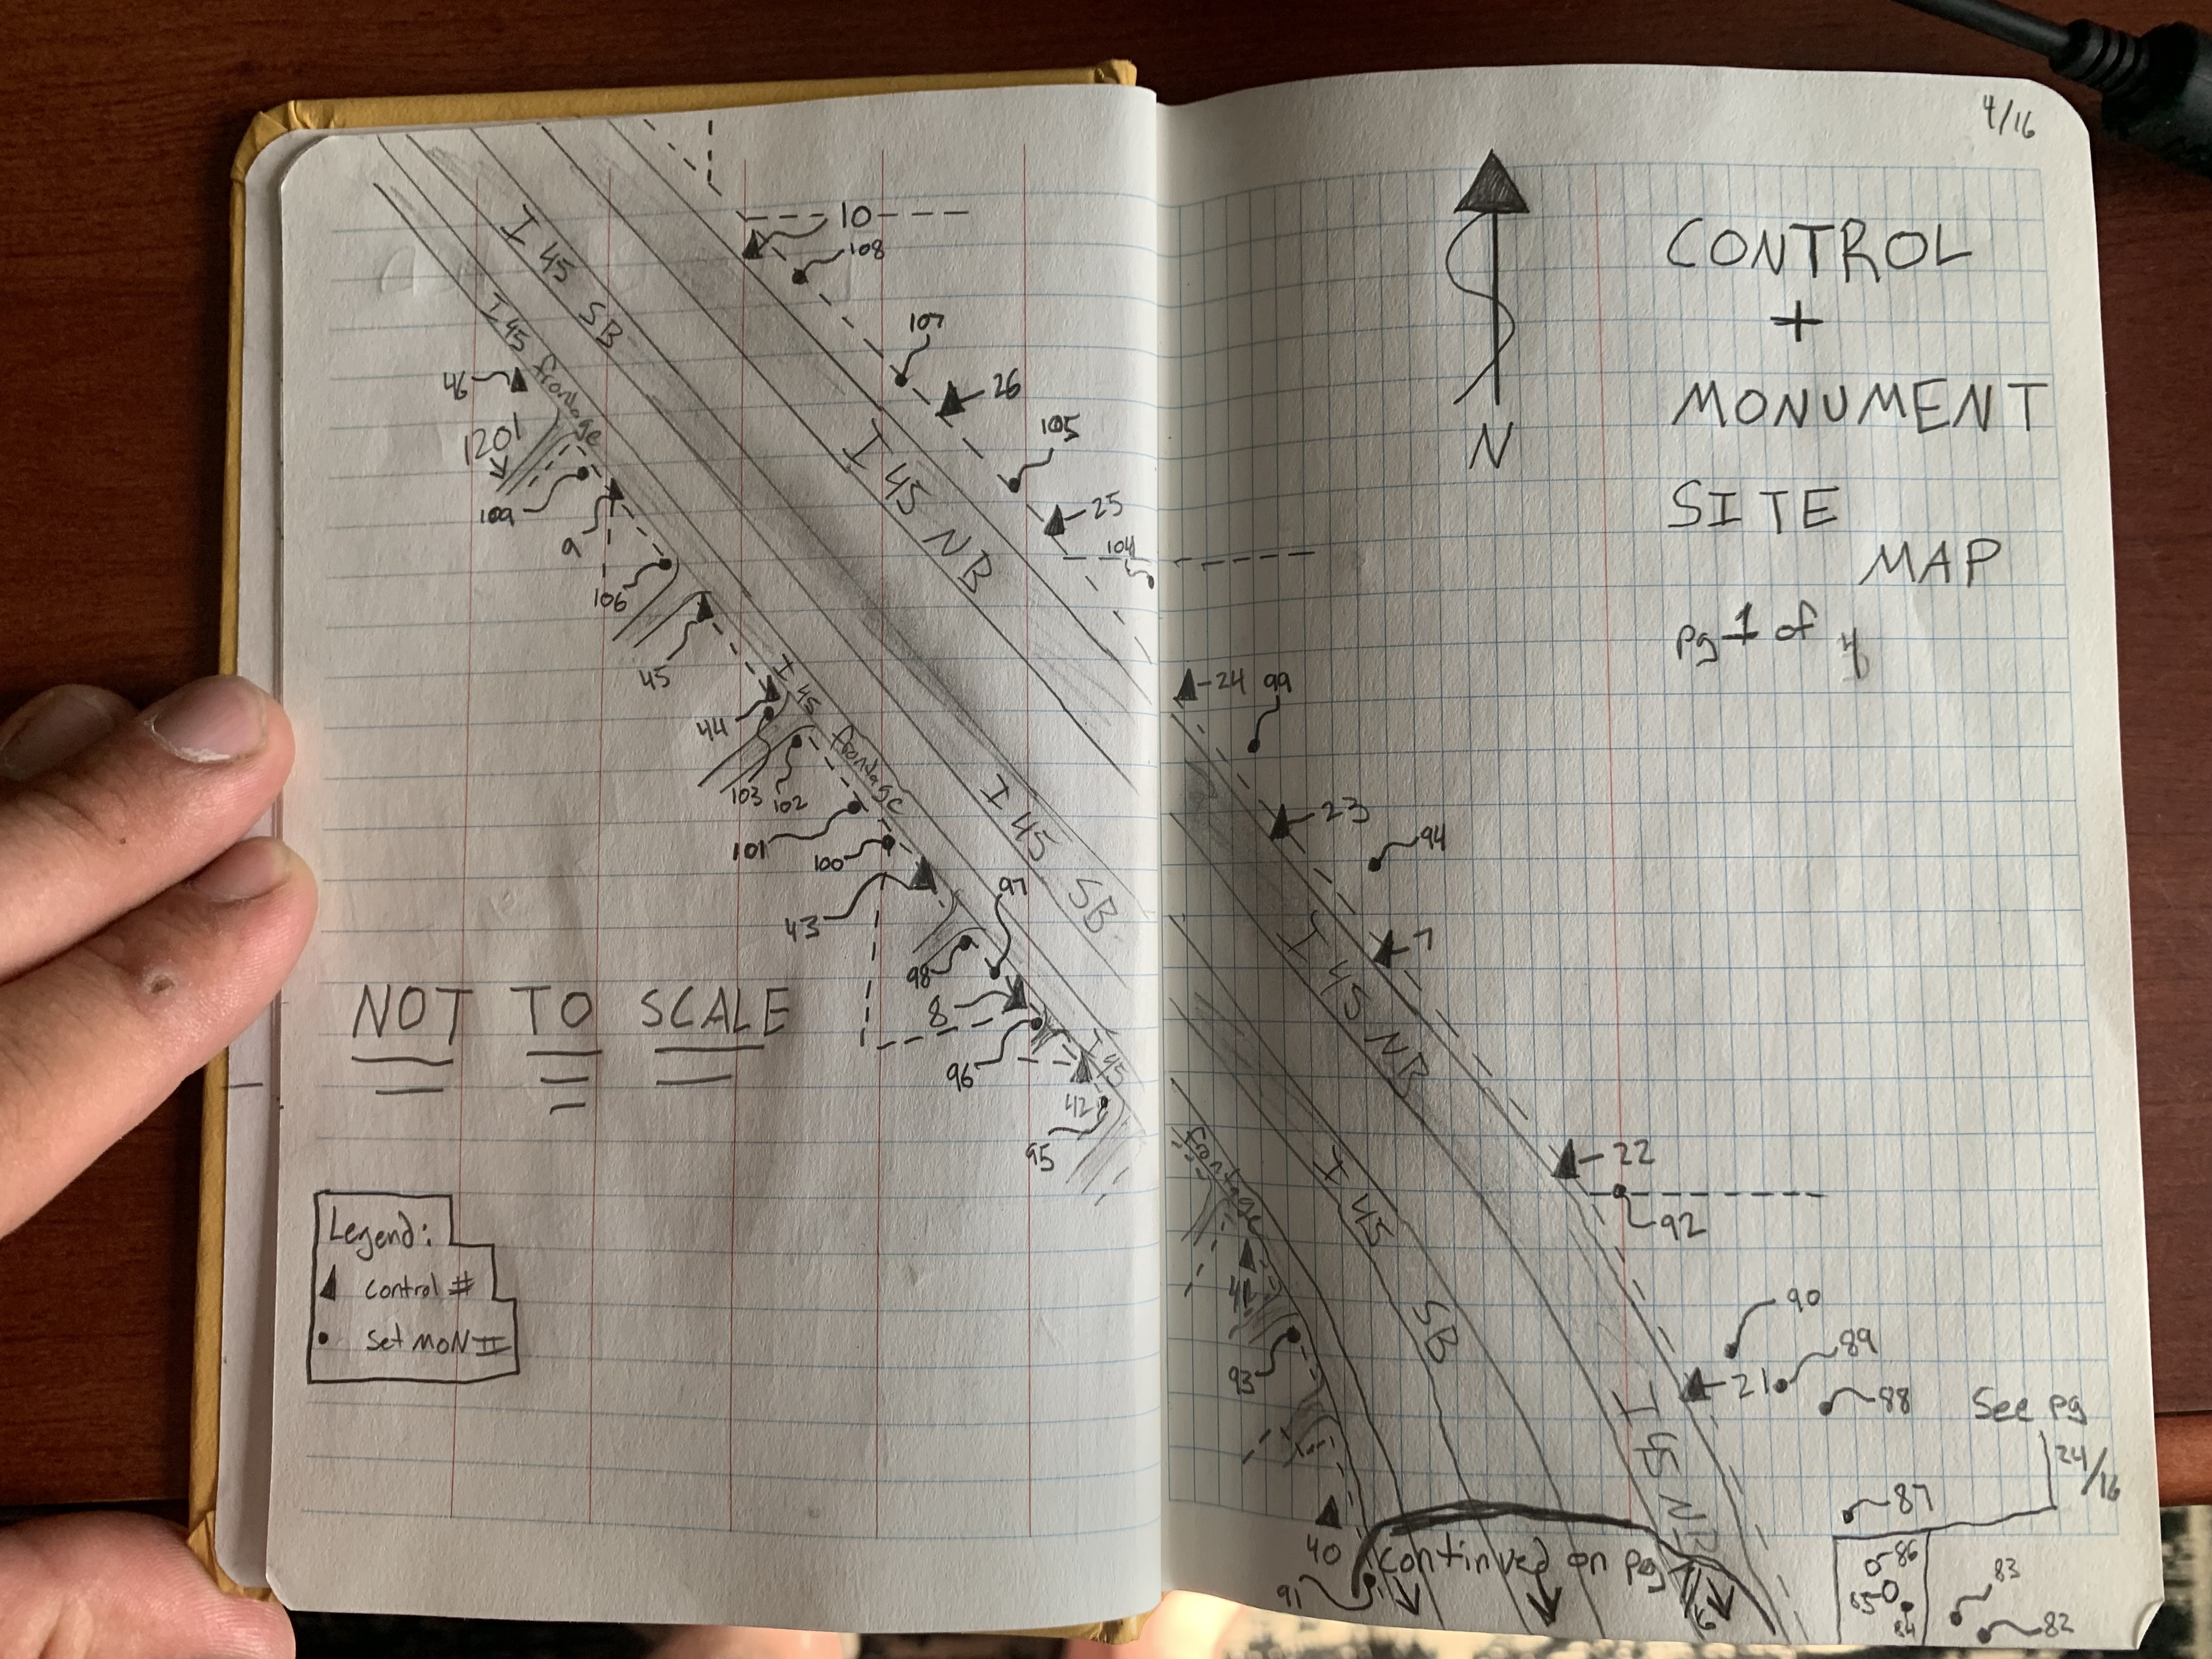 10
108
I 45 SB
107
26
I 45 frontage
46
1201
105
I 45 NB
109
25
9
104
106
45
I 45 frontage
44
103
102
101
100
I 45 SB
97
43
98
8
96
I 45
42
95
NOT TO SCALE
Legend:
Control #
Set MON II
4/16
N
CONTROL
+
MONUMENT
SITE
MAP
pg 1 of
24
99
23
94
7
I 45 NB
22
92
frontage
I 45 SB
41
90
89
93
21
88
See pg
24/16
I 45 NB
87
40
continued on pg
91
86
85
84
83
82